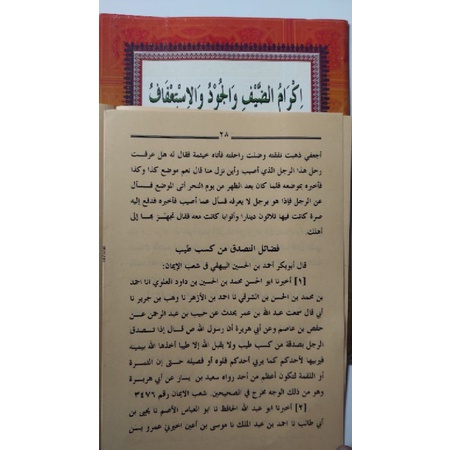 إِكْرَامُ الضَّيْفِ وَالْجُوْدُ وَالْاِسْتِعْفَافُ
٢٨
أجعفي ذهبت نفقته وضلت راحلته فأتاه خيثمة فقال له هل عرفت
رحل هذا الرجل الذي أصيب وأين نزل منا قال نعم موضع كذا وكذا
فأخبره بموضعه فلما كان بعد الظهر من يوم النحر أتى الموضع فسأل
عن الرجل فإذا هو برجل لا يعرفه فسأل عما أصيب فأخبره فدفع إليه
صرة كانت فيها ثلاثون دينارا وأثوابا كانت معه فقال تجهّز بها إلى
أهلك.
فضائل التصدق من كسب طيب
قال أبوبكر أحمد بن الحسين البيهقي في شعب الإيمان:
[١] أخبرنا ابو الحسن محمد بن الحسين بن داود العلوي انا احمد
بن محمد بن الحسن بن الشرقي نا احمد بن الأزهر نا وهب بن جرير نا
أبي قال سمعت عبد الله بن عمر يحدث عن حبيب بن عبد الرحمن عن
حفص بن عاصم وعن أبي هريرة أن رسول الله ص قال إذا تصدق
الرجل بصدقة من كسب طيب ولا يقبل الله إلا طيبا أخذها الله بيمينه
فيربيها لأحدكم كما يربي أحدكم فلوه أو فصيله حتى إن التمرة
أو اللقمة لتكون أعظم من أحد رواه سعيد بن يسار عن أبي هريرة
وهو من ذلك الوجه مخرج في الصحيحين. شعب الايمان رقم ٣٤٧٦
[٢] أخبرنا ابو عبد الله الحافظ نا ابو العباس الأصم نا يحيى بن
أبي طالب نا احمد بن عبد الملك نا موسى بن أعين اخبرني عمرو بن